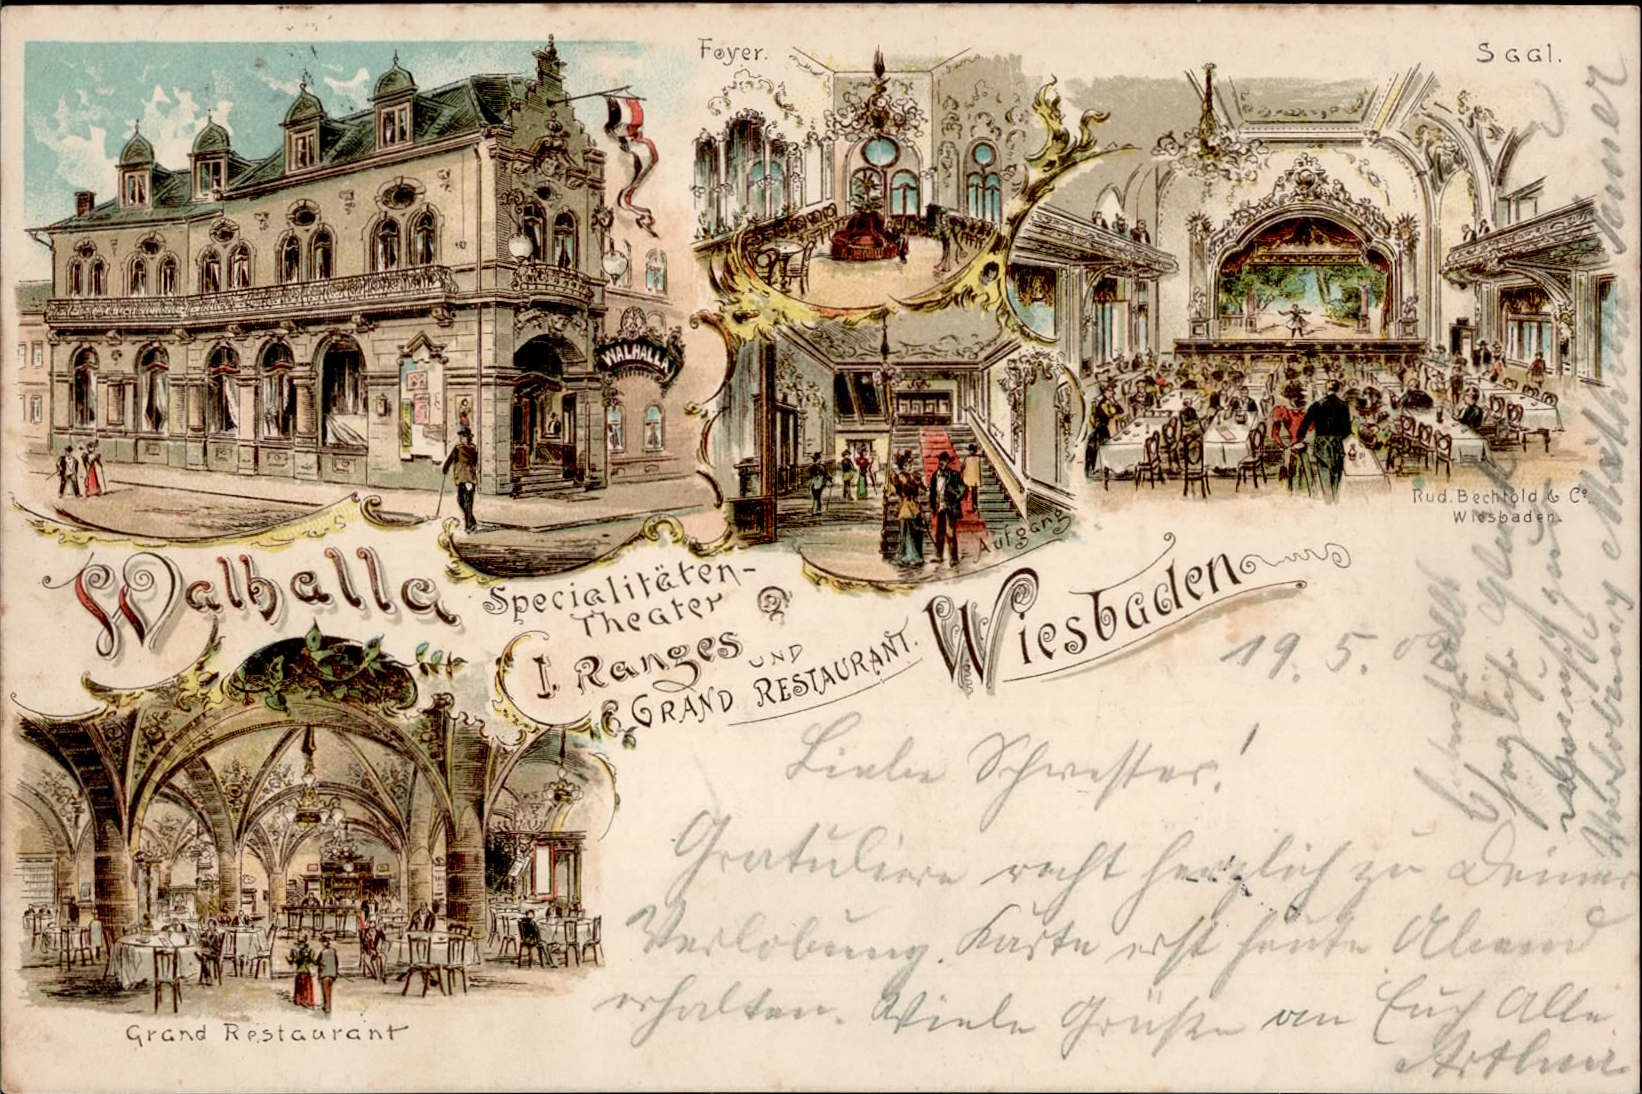 Foyer.
Saal.
WALHALLA
Aufgang
Rud. Bechtold & Co.
Wiesbaden.
Walhalla
Specialitäten-
Theater
I. Ranges
UND
GRAND RESTAURANT.
Wiesbaden
Grand Restaurant
19. 5.
Liebe Schwester!
Gratuliere recht herzlich zu Deiner
Verlobung. Karte erst heute Abend
erhalten. Viele Grüße an Euch Alle
Arthur
Glück
Verlobung